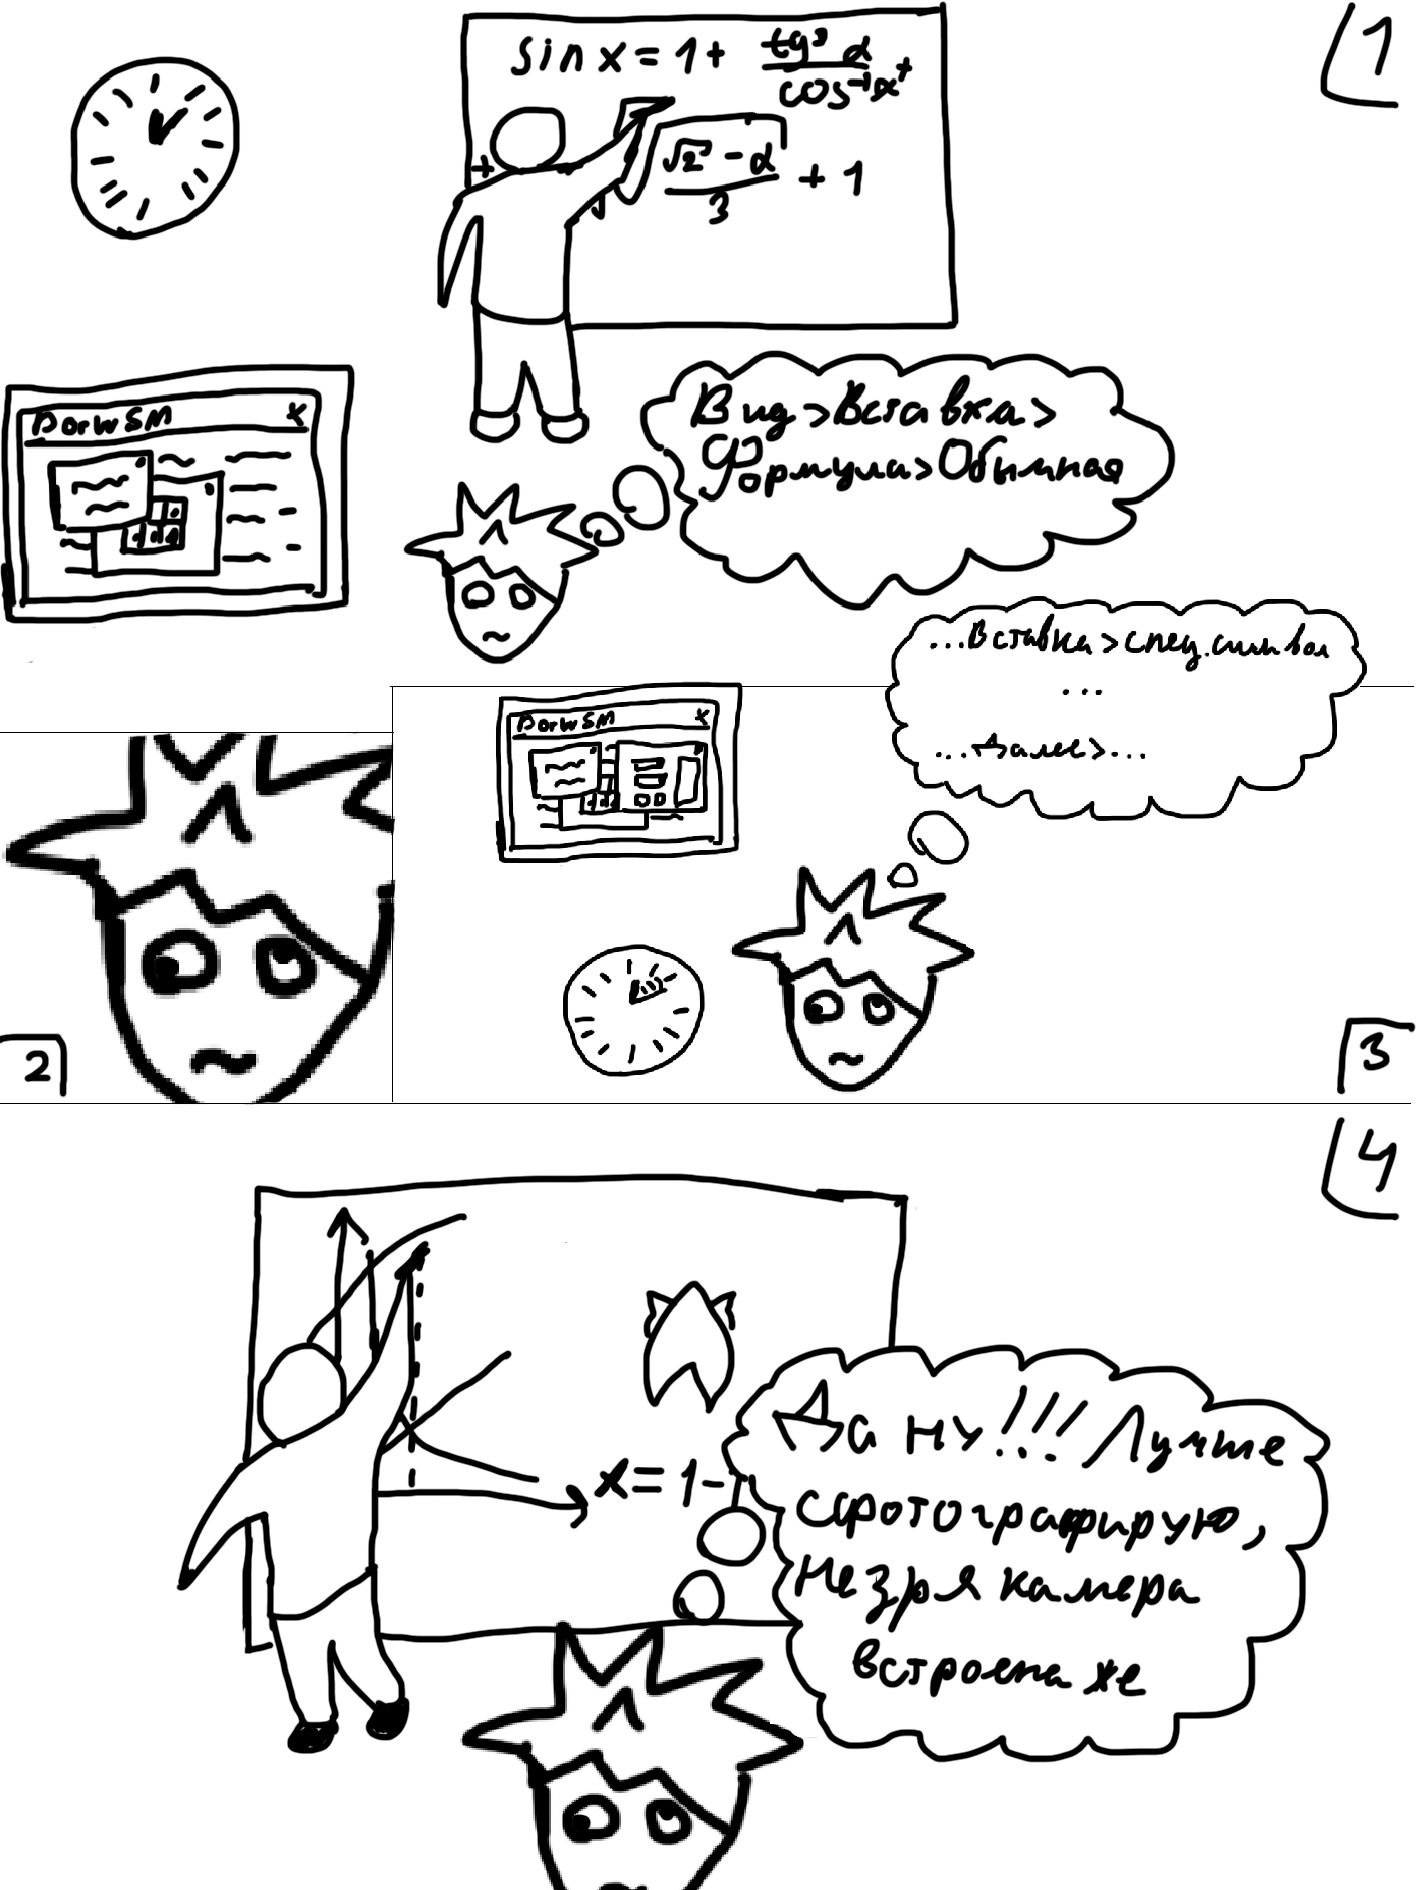 1
sin x = 1 + tg³ α / cos⁻¹ x +
+ √ √2 - α / 3 + 1
DorwSM x
Вид > Вставка >
Формула > Обычная
2
...Вставка > спец. символ
...
...Далее > ...
DorwSM x
3
4
x = 1 -
Да ну!!! Лучше
сфотографирую,
Не зря камера
встроена же